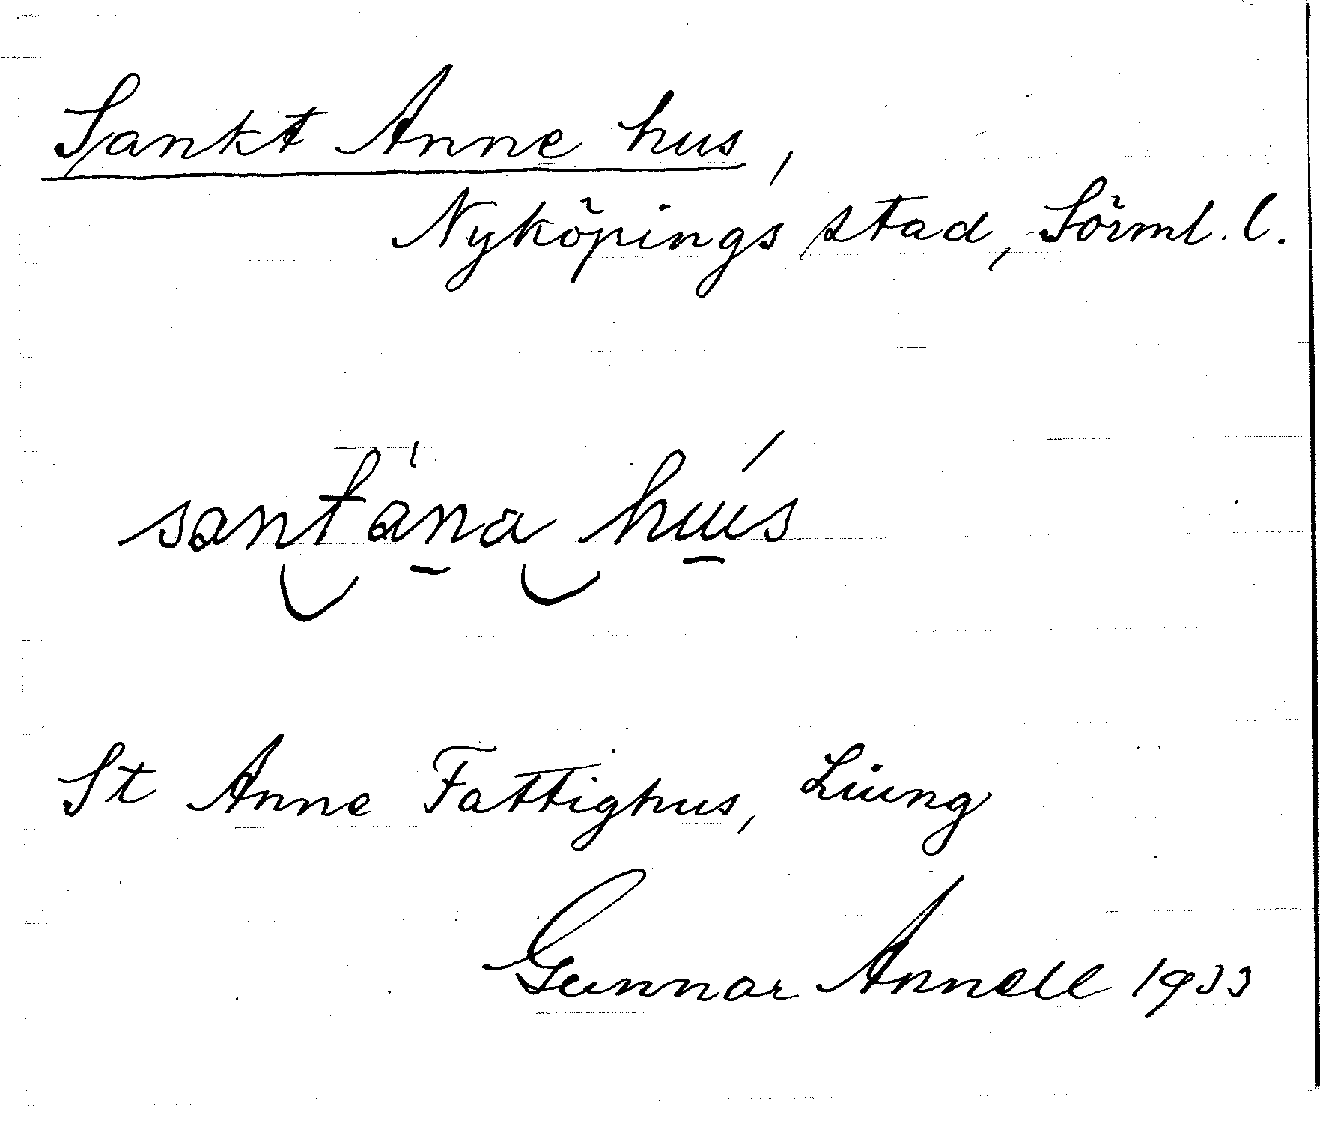 Sankt Anne hus,
Nyköpings stad, Sörml. l.
santána hús
St Anne Fattighus, Liung
Gunnar Annell 1933